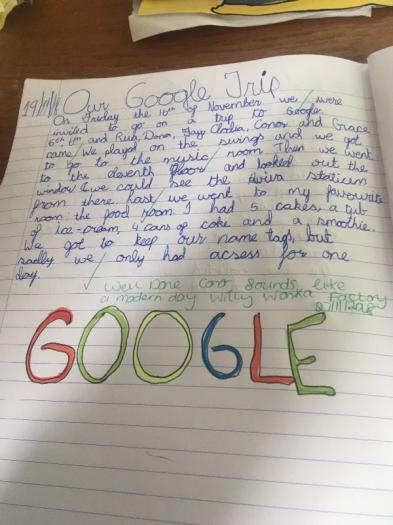 19/11/18 Our Google Trip
On Friday the 16th of November we were
invited to go on a trip to Google.
6th and Rua, Dara, Conor and Grace
came. We played on the swings and we got
to go to the music room. Then we went
to the eleventh floor and looked out the
window & we could see the Aviva
from there. Last we went to my favourite
room, the food room. I had 5 cakes, a tub
of ice-cream, 4 cans of coke and a smoothie.
We got to keep our name tags, but
sadly we only had acsess for one
day.
Well Done Conor, Sounds like
a modern day Willy Wonka Factory
GOOGLE